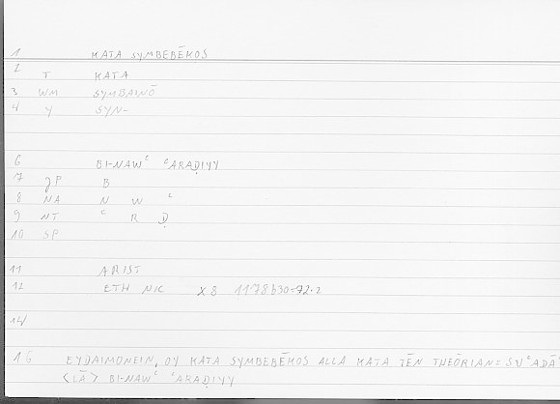 1 KATA SYMBEBĒKOS
2 T KATA
3 WM SYMBAINŌ
4 Y SYN-
6 BI-NAWʿ ʿARAḌIYY
7 JP B
8 NA N W ʿ
9 NT ʿ R Ḍ
10 SF
11 ARIST
12 ETH NIC X 8 1178b30-72.2
14
16 EYDAIMONEIN, OY KATA SYMBEBĒKOS ALLA KATA TĒN THEŌRIAN = SUʿADĀʾ
<LĀ> BI-NAWʿ ʿARAḌIYY